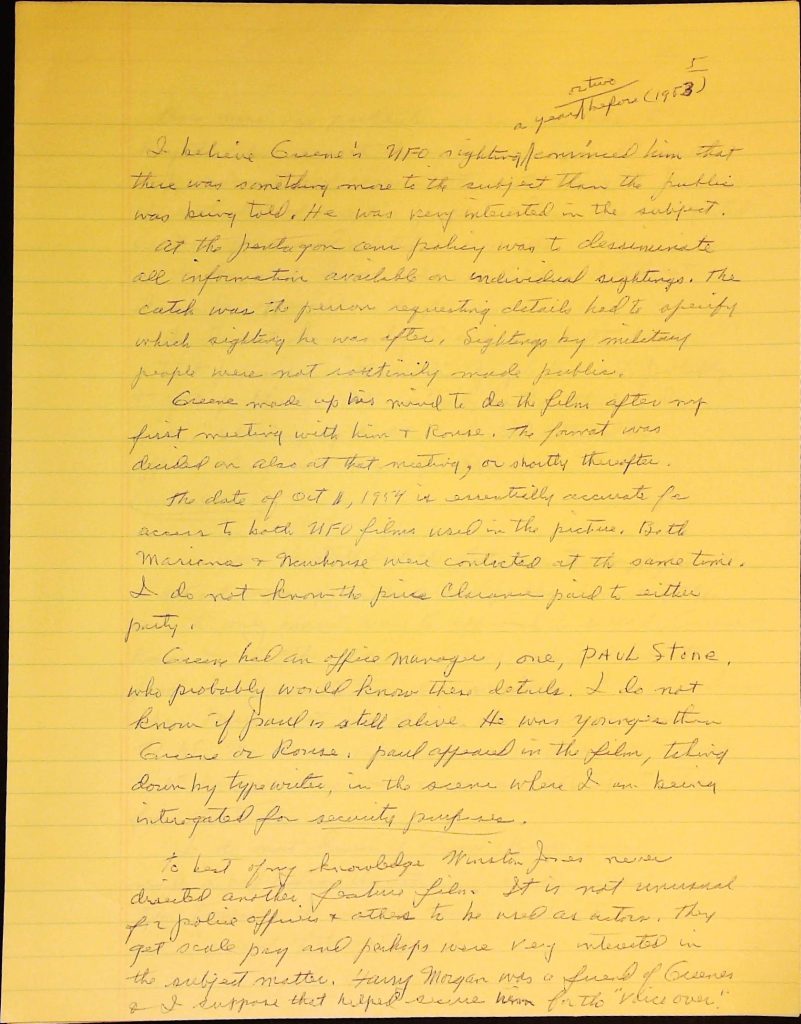 5
or two
a year before (1953)
I believe Greene's UFO sighting convinced him that
there was something more to the subject than the public
was being told. He was very interested in the subject.
At the pentagon our policy was to dessiminate
all information available on individual sightings. The
catch was the person requesting details had to specify
which sighting he was after. Sightings by military
people were not routinily made public.
Greene made up his mind to do the film after my
first meeting with him + Rouse. The format was
decided on also at that meeting, or shortly thereafter.
The date of Oct 11, 1954 is essentially accurate for
access to both UFO films used in the picture. Both
Mariana + Newhouse were contacted at the same time.
I do not know the price Clarence paid to either
party.
Greene had an office manager, one, PAUL STONE,
who probably would know these details. I do not
know if paul is still alive. He was younger than
Greene or Rouse. paul appeared in the film, taking
down by typewriter, in the scene where I am being
interogated for security purposes.
To best of my knowledge Winston Jones never
directed another feature film. It is not unusual
for police officers + others to be used as actors. They
get scale pay and perhaps were very interested in
the subject matter. Harry Morgan was a friend of Greenes
+ I suppose that helped secure him for the "voice over".